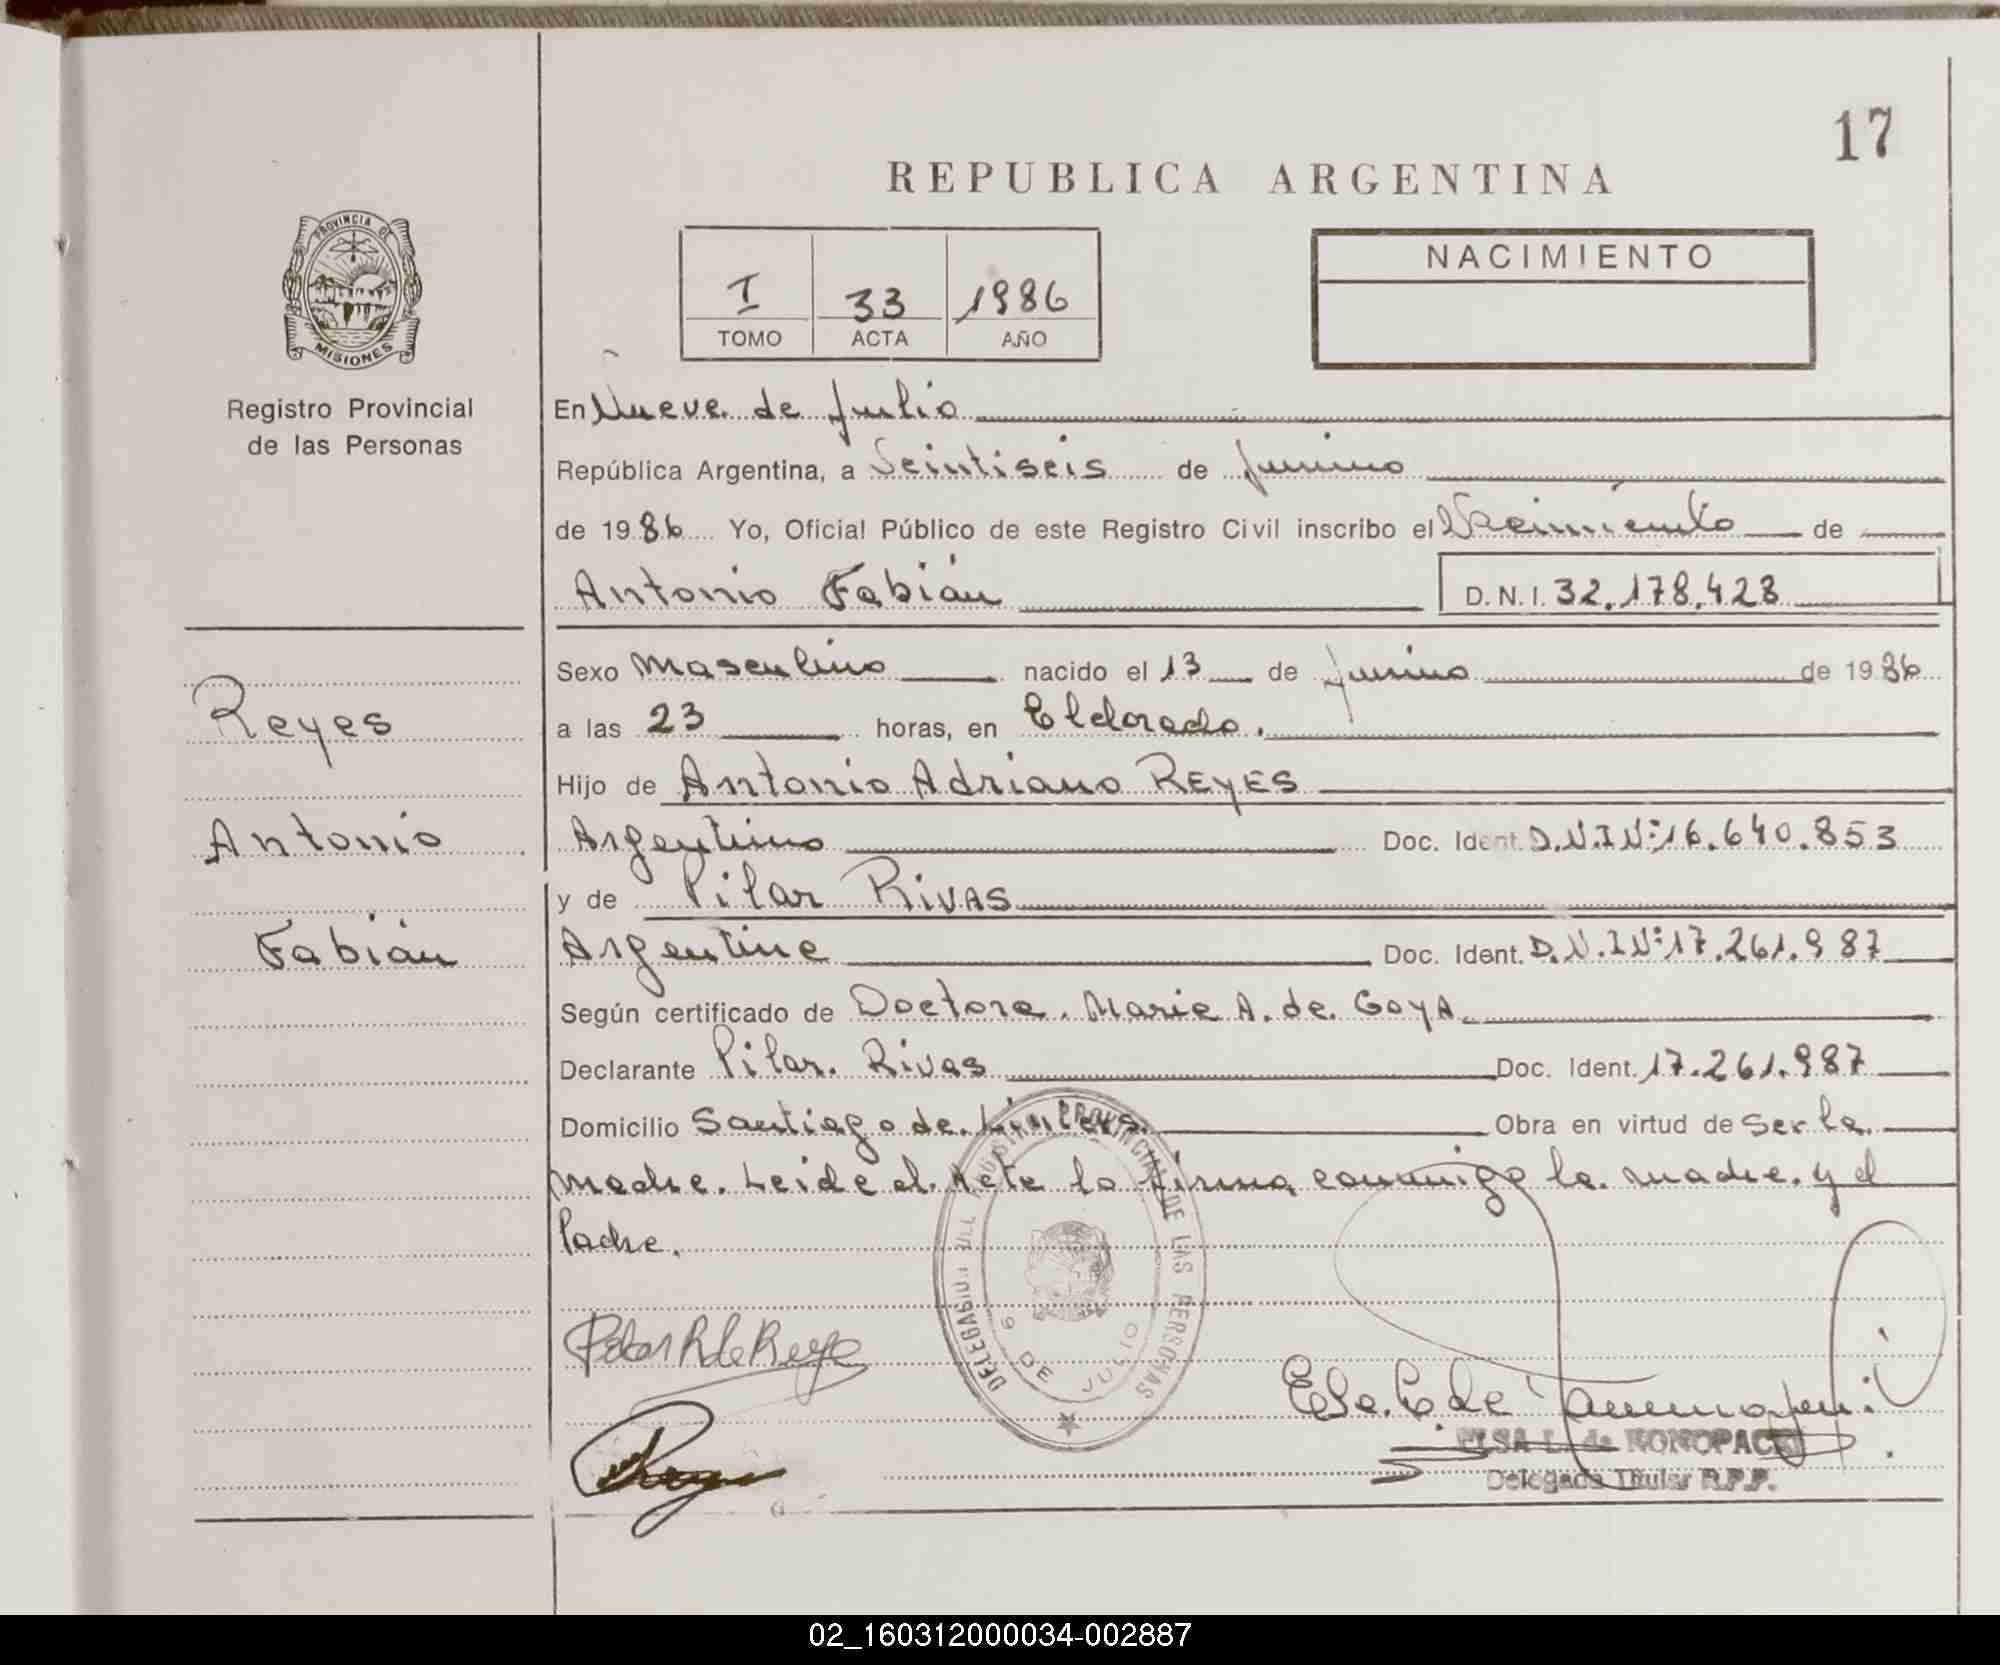 17
REPUBLICA ARGENTINA
PROVINCIA DE
MISIONES
Registro Provincial
de las Personas
I 33 1986
TOMO ACTA AÑO
NACIMIENTO
En Nueve de Julio
República Argentina, a Veintiseis de Junio
de 1986 Yo, Oficial Público de este Registro Civil inscribo el Nacimiento de
Antonio Fabián D.N.I. 32.178.428
Sexo Masculino nacido el 13 de Junio de 1986
a las 23 horas, en Eldorado.
Hijo de Antonio Adriano REYES
Argentino Doc. Ident. D.N.I Nº: 16.640.853
y de Pilar RIVAS
Argentina Doc. Ident. D.N.I Nº: 17.261.987
Según certificado de Doctora. Maria A. de. GOYA.
Declarante Pilar. Rivas Doc. Ident. 17.261.987
Domicilio Santiago de. Liniers. Obra en virtud de Ser la.
Madre. Leida el. Acta la firma conmigo la. madre. y el
Padre.
Reyes
Antonio
Fabián
DELEGACION DEL REGISTRO PROVINCIAL DE LAS PERSONAS
9 DE JULIO
Pilar R de Reyes
Reyes
ELSA L. de KONOPACKI
Delegada Titular R.P.P.
02_160312000034-002887